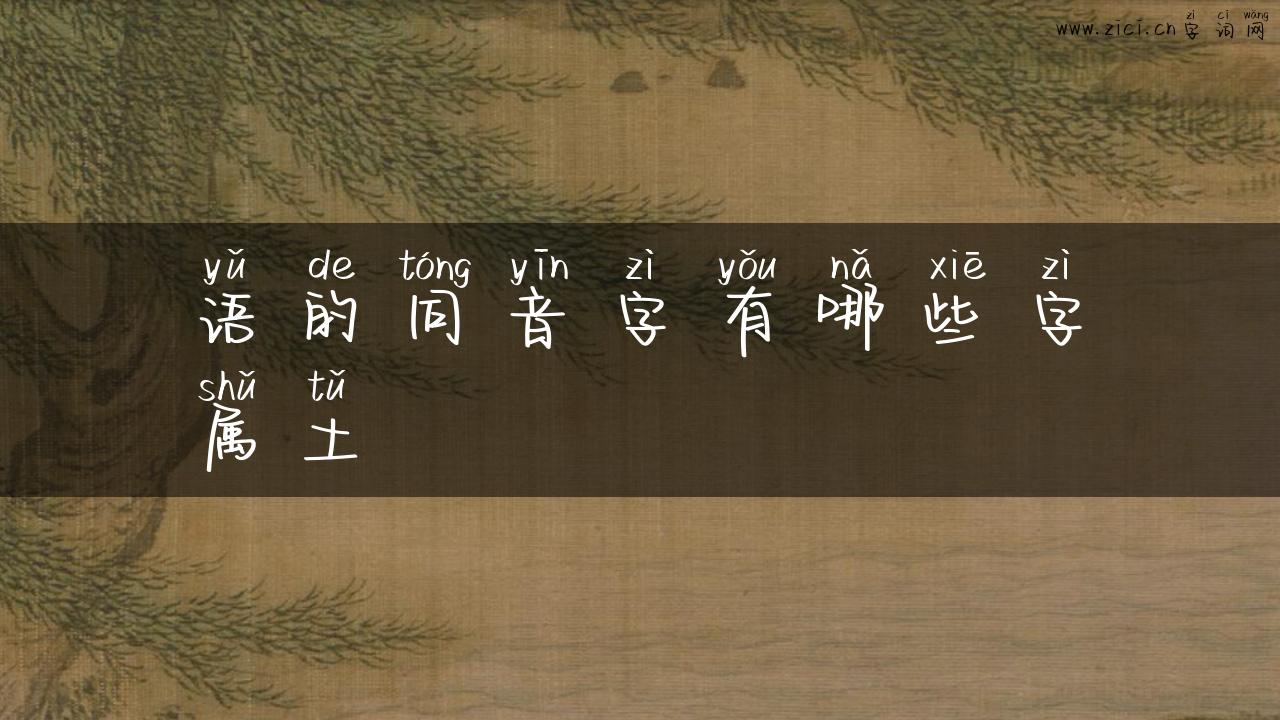 www.zici.cn 字词网
zì cí wǎng
yǔ de tóng yīn zì yǒu nǎ xiē zì
语的同音字有哪些字
shǔ tǔ
属土